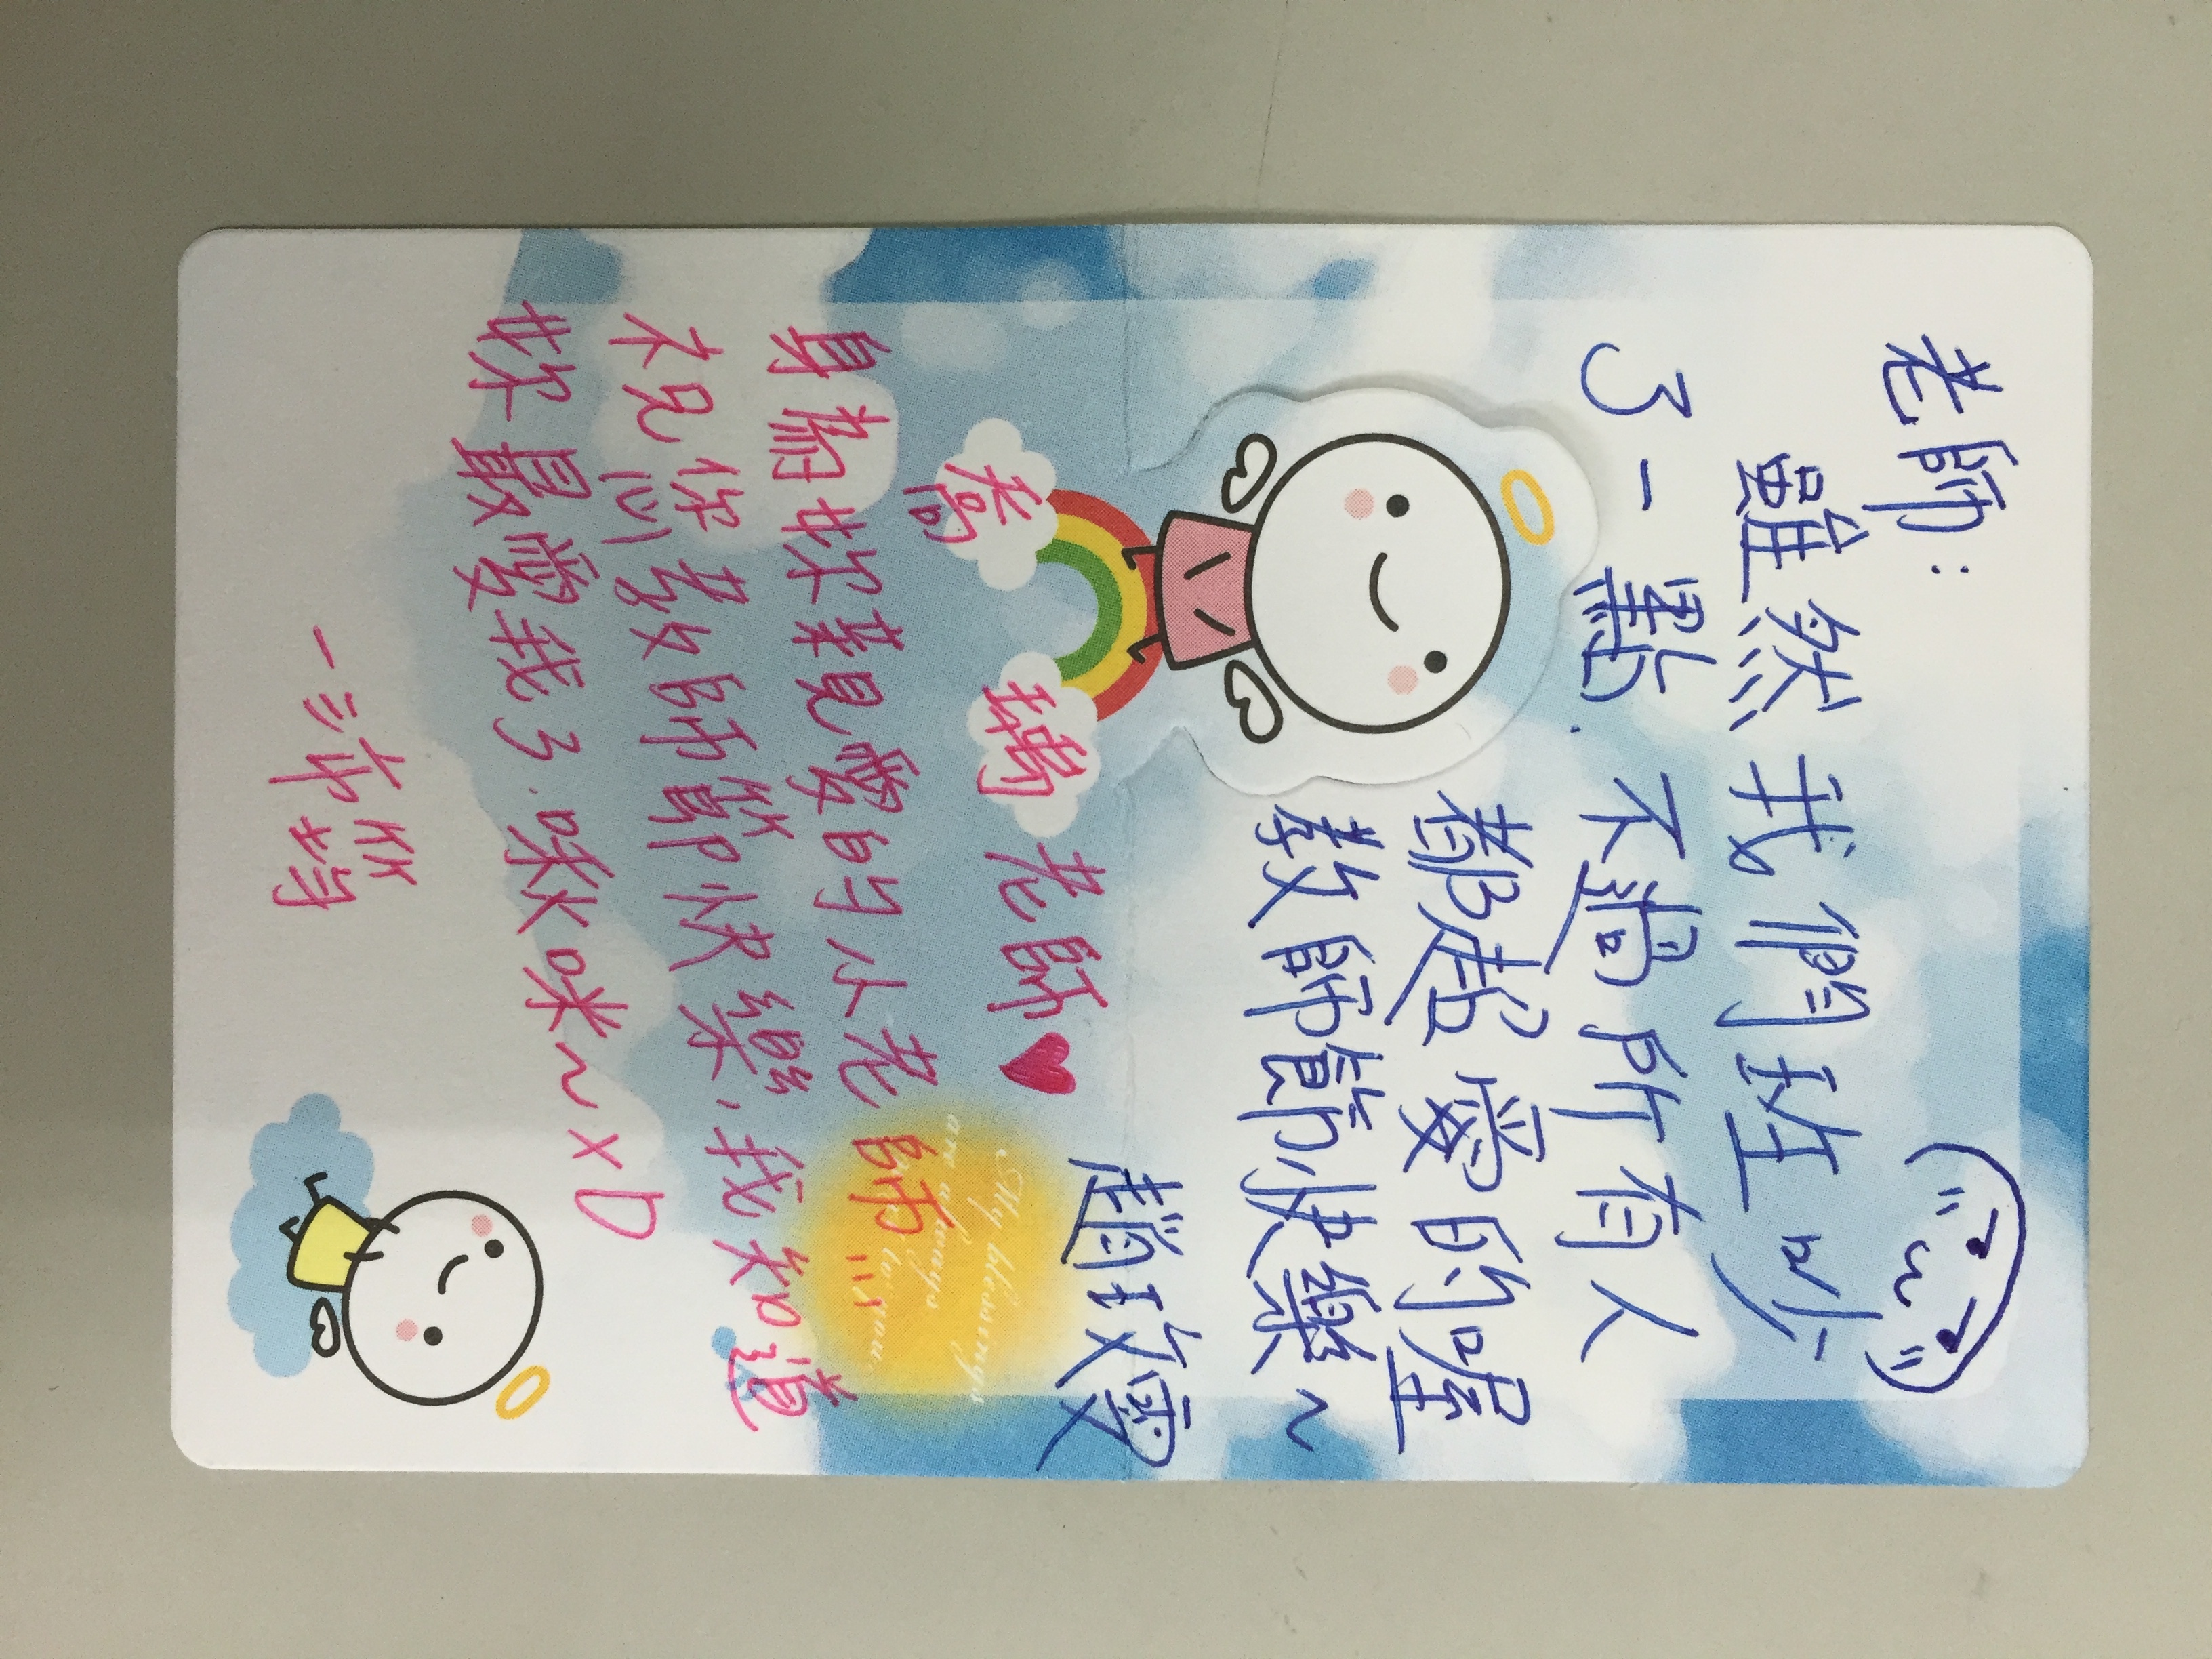 老師:
雖然我們班吵
了一點.不過所有人
都超愛的喔
教師節快樂~
趙玟
老師♥
身為妳親愛的小老師
祝您教師節快樂,我知道
妳最愛我了.啾咪~XD
My blessings
are always
to you